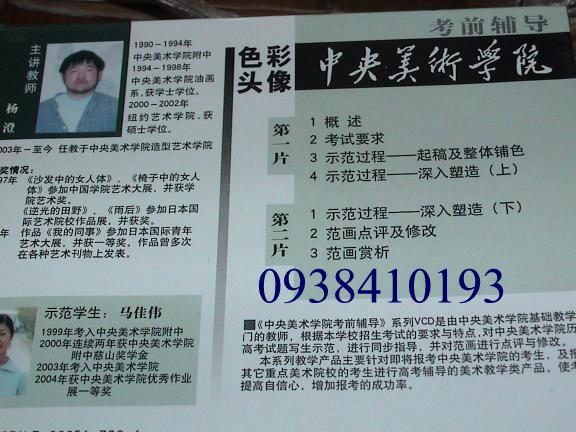 考前辅导
中央美術学院
色彩头像
主讲教师
杨澄
1990-1994年
中央美术学院附中
1994-1998年
中央美术学院油画
系,获学士学位。
2000-2002年
纽约艺术学院,获
硕士学位。
2003年-至今 任教于中央美术学院造型艺术学院
奖情况:
97年 《沙发中的女人体》、《椅子中的女人
体》参加中国学院艺术大展,并获学
院艺术奖。
《逆光的田野》、《雨后》参加日本国
际艺术院校作品展,并获奖。
年 作品《我的同事》参加日本国际青年
艺术大展,并获一等奖。作品曾多次
在各种艺术刊物上发表。
第一片
1 概 述
2 考试要求
3 示范过程——起稿及整体铺色
4 示范过程——深入塑造(上)
第二片
1 示范过程——深入塑造(下)
2 范画点评及修改
3 范画赏析
0938410193
示范学生: 马佳伟
1999年考入中央美术学院附中
2000年连续两年获中央美术学院
附中慈山奖学金
2003年考入中央美术学院
2004年获中央美术学院优秀作业
展一等奖
《中央美术学院考前辅导》系列VCD是由中央美术学院基础教学
门的教师,根据本学校招生考试的要求与特点,对中央美术学院历
高考试题写生示范,进行同步指导,并对范画进行点评与修改。
本系列教学产品主要针对即将报考中央美术学院的考生,及报
其它重点美术院校的考生进行高考辅导的美术教学类产品。使考
提高自信心,增加报考的成功率。